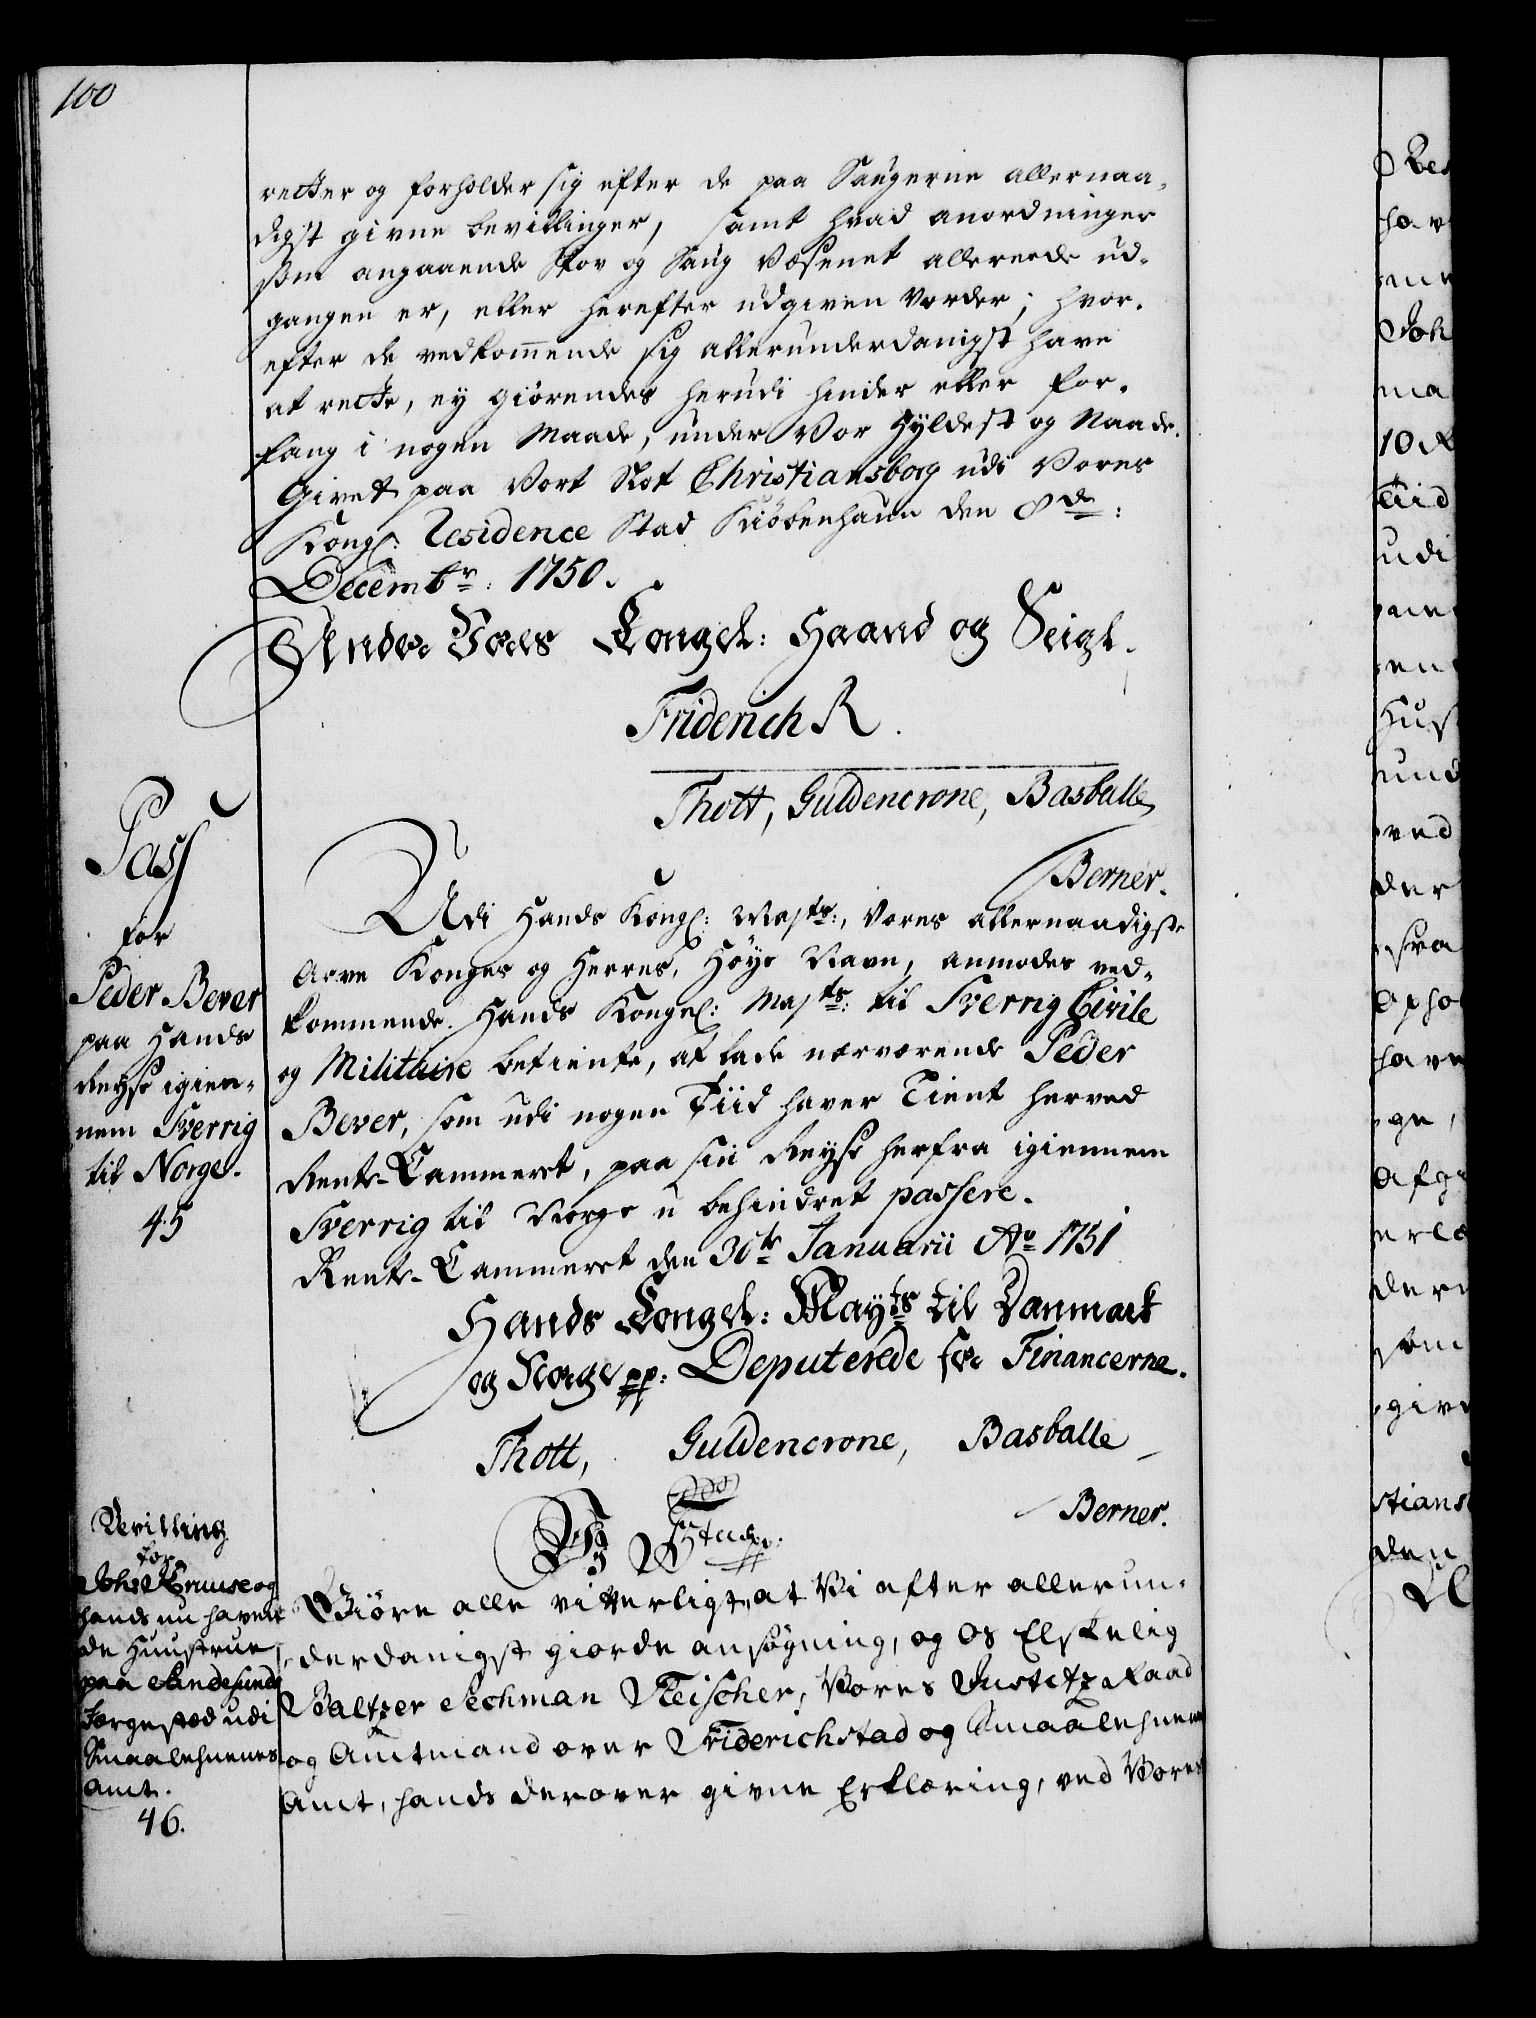 100
retter og forholder sig efter de paa Saugerne allernaa-
digst givne bevillinger, samt hvad anordninger
som angaaende Skov og Saug Væsenet allereede ud-
gangen er, eller herefter udgiven vorder; hvor-
efter de vedkommende sig allerunderdanigst have
at rette, ey giørendes herudi hinder eller for-
fang i nogen Maade, under Vor Hyldest og Naade.
Givet paa Vort Slot Christiansborg udi Vores
Kongl: Residence Stad Kiøbenhaun den 8de:
Decembr: 1750.
Under Vores Kongel: Haand og Seigl.
Friderich R.
Thott, Guldencrone, Basballe,
Berner.
Pass
for
Peder Bever
paa Hands
Reyse igien-
nem Sverrig
til Norge.
45
Udi Hands Kongl: Majts:, Vores allernaadigste
Arve Konges og Herres, Høye Navn, anmodes ved-
kommende Hands Kongel: Majts: til Sverrig Civile
og Militaire betiente, at lade nærværende Peder
Bever, som udi nogen Tiid haver Tient herved
Rente-Cammeret, paa sin Reyse herfra igiennem
Sverrig til Norge u behindret passere.
Rente-Cammeret den 30te Januarii Ao 1751
Hands Kongel: Mayts til Danmark
og Norge pp: Deputerede for Financerne.
Thott, Guldencrone, Basballe
Berner.
Bevilling
for
Johs Kruuse og
hands nu haven-
de Huustrue,
paa Sandesunds
Færgestæd udi
Smaalehnenes
Amt.
46.
Giøre alle vitterligt, at Vi efter allerun-
derdanigst giorde ansøgning, og Os Elskelig
Baltzer Sechman Fleischer, Vores Justitz Raad
og Amtmand over Friderichstad og Smaalehnenes
Amt, hands derover givne Erklæring, ved Vores